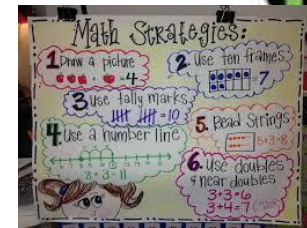 Math Strategies:
1 Draw a picture
= 4
2. Use ten frames
= 7
3 use tally marks
= 10
4. Use a number line
8 + 3 = 11
5. Bead Strings
5+3=8
6. Use doubles
& near doubles
3+3=6
3+4=7